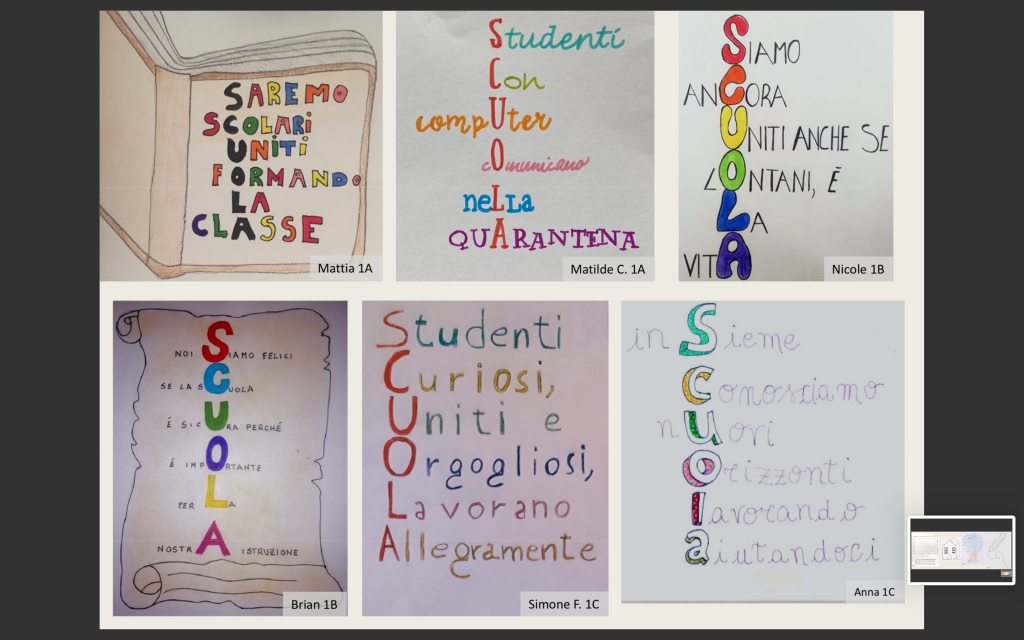 SAREMO
SCOLARI
UNITI
FORMANDO
LA
CLASSE
Mattia 1A
Studenti
Con
compUter
cOmunicano
neLLa
QUARANTENA
Matilde C. 1A
SIAMO
ANCORA
UNITI ANCHE SE
LONTANI, È
LA
VITA
Nicole 1B
NOI SIAMO FELICI
SE LA SCUOLA
É SICURA PERCHÉ
É IMPORTANTE
PER LA
NOSTRA ISTRUZIONE
Brian 1B
Studenti
Curiosi,
Uniti e
Orgogliosi,
Lavorano
Allegramente
Simone F. 1C
inSieme
Conosciamo
nUovi
Orizzonti
lavorando
aiutandoci
Anna 1C